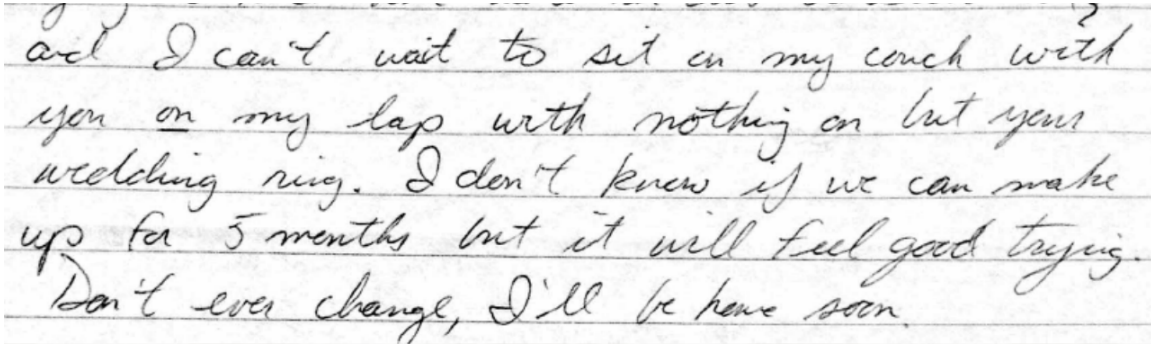 and I can't wait to sit on my couch with
you on my lap with nothing on but your
wedding ring. I don't know if we can make
up for 5 months but it will feel good trying.
Don't ever change, I'll be home soon.